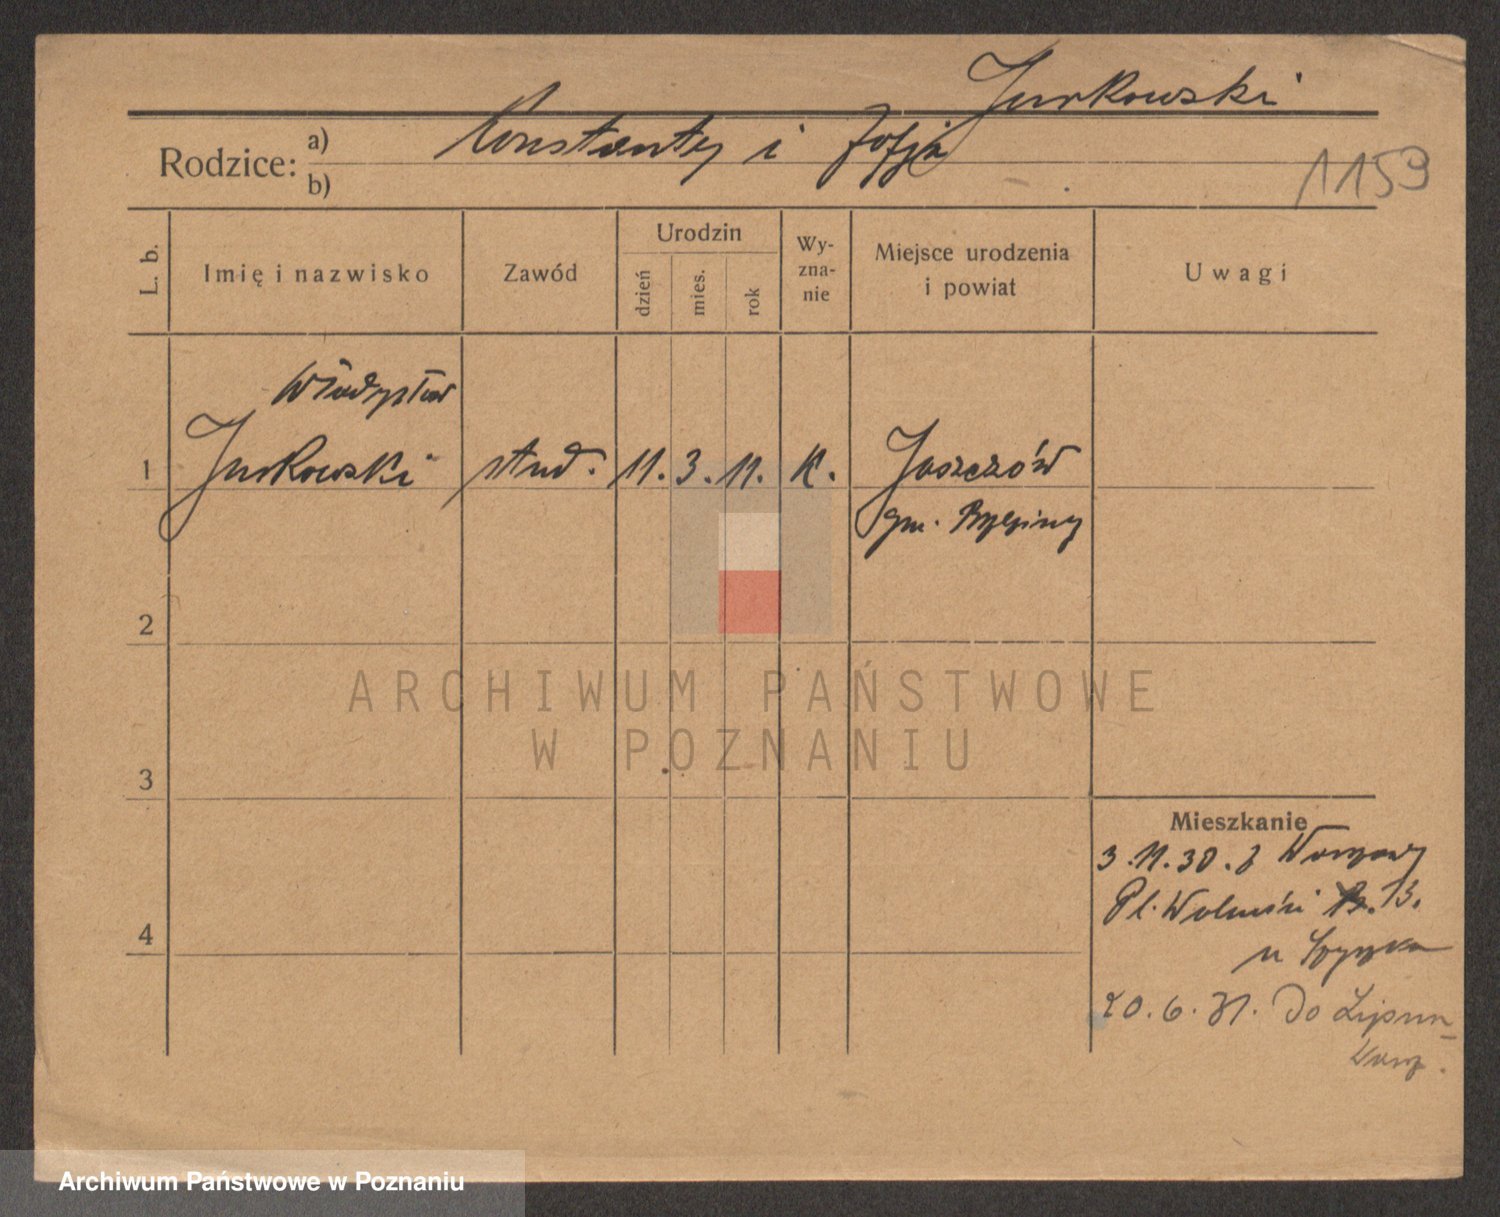 Jurkowski
Konstanty i Zofja
Rodzice: a)
b)
1159
L. b.
Imię i nazwisko
Zawód
Urodzin
dzień
mies.
rok
Wy-
zna-
nie
Miejsce urodzenia
i powiat
Uwagi
Władysław
1 Jurkowski stud. 11. 3. 11. K. Jaszczów
gm.
2
ARCHIWUM PAŃSTWOWE
W POZNANIU
3
Mieszkanie
3.11.30. z Warszawy
Pl. Wolności 13.
u
4
20.6.31. Do
Warsz.
Archiwum Państwowe w Poznaniu